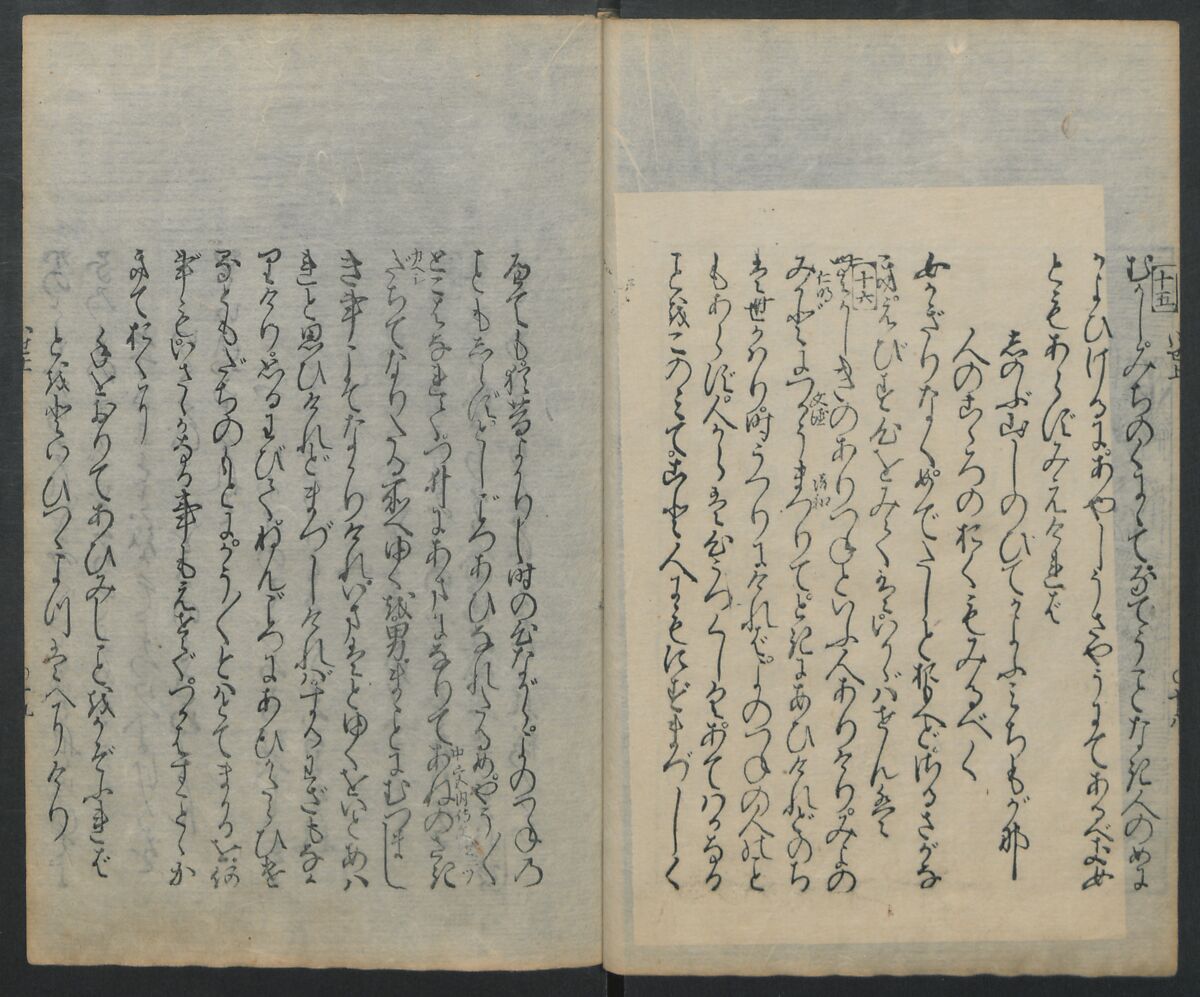 十五
むかしみちのくにてなでうことなき人のめに
かよひけるにあやしうさやうにてあるべき女
ともあらずみえければ
しのぶ山しのびてかよふみちもがな
人のこゝろのおくもみるべく
女かぎりなくめでたしと思へどさるさがな
きえびす心をみてはいかゞはせんは
十六
むかしきのありつねといふ人ありけりみよの
仁明 文徳 清和
みかどにつかうまつりてときにあひけれどのち
は世かはり時うつりにければよのつねの人のごと
もあらず人がらは心うつくしくあてはかなる
ことをこのみてこと人にもにずまづしく
へても猶昔よかりし時の心ながらよのつねの
こともしらずとしごろあひなれたるめやう〳〵
とこはなれてつゐにあまになりてあねのさき
だちてなりたる所へゆくを男まことにむつまし
き事こそなかりけれいまはとゆくをいとあは
れと思ひけれどまづしければするわざもなか
りけり思ひわびてねんごろにあひかたらひけ
るともだちのもとにかう〳〵いまはとてまかるを何
事もいさゝかなる事もえせでつかはすことゝか
きておくに
手をおりてあひみしことをかぞふれば
とをといひつゝよつはへにけり